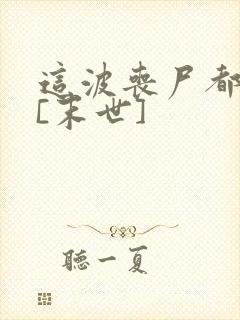 這波喪尸都
[末世]
聽一夏